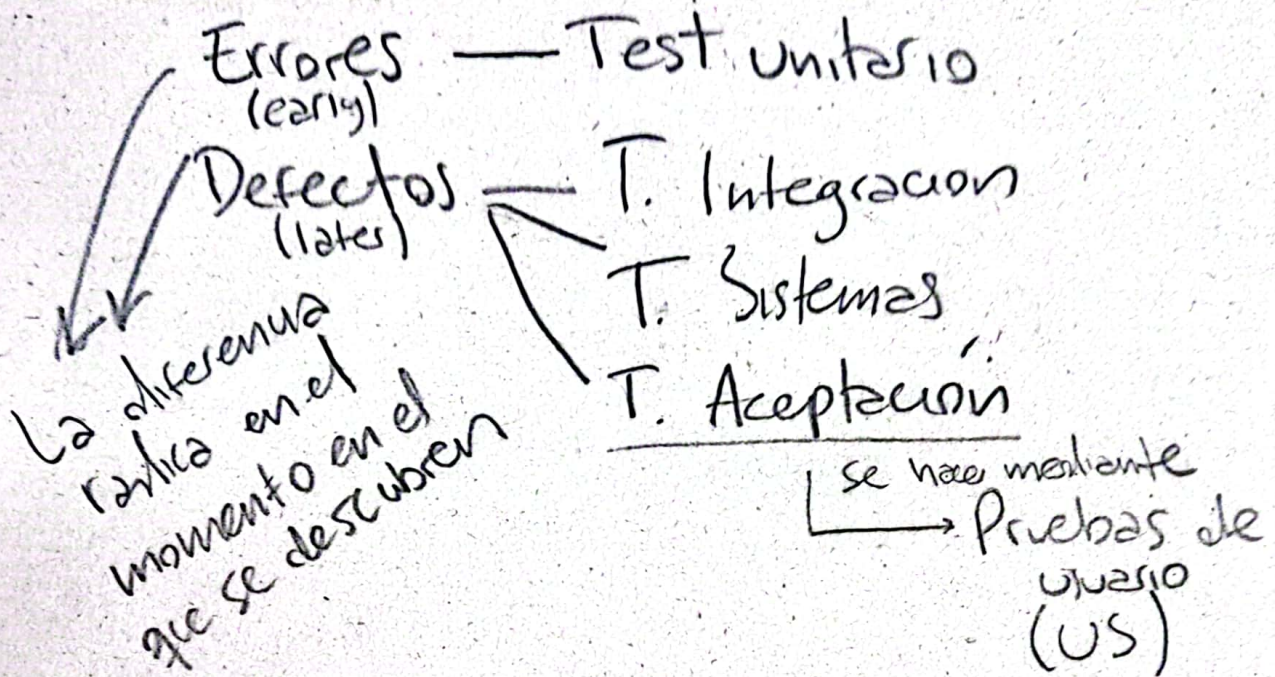 Errores — Test unitario
(early)
Defectos — T. Integracion
(later)
T. Sistemas
T. Aceptación
se hace mediante
Pruebas de
usuario
(US)
La diferencia
radica en el
momento en el
que se descubren